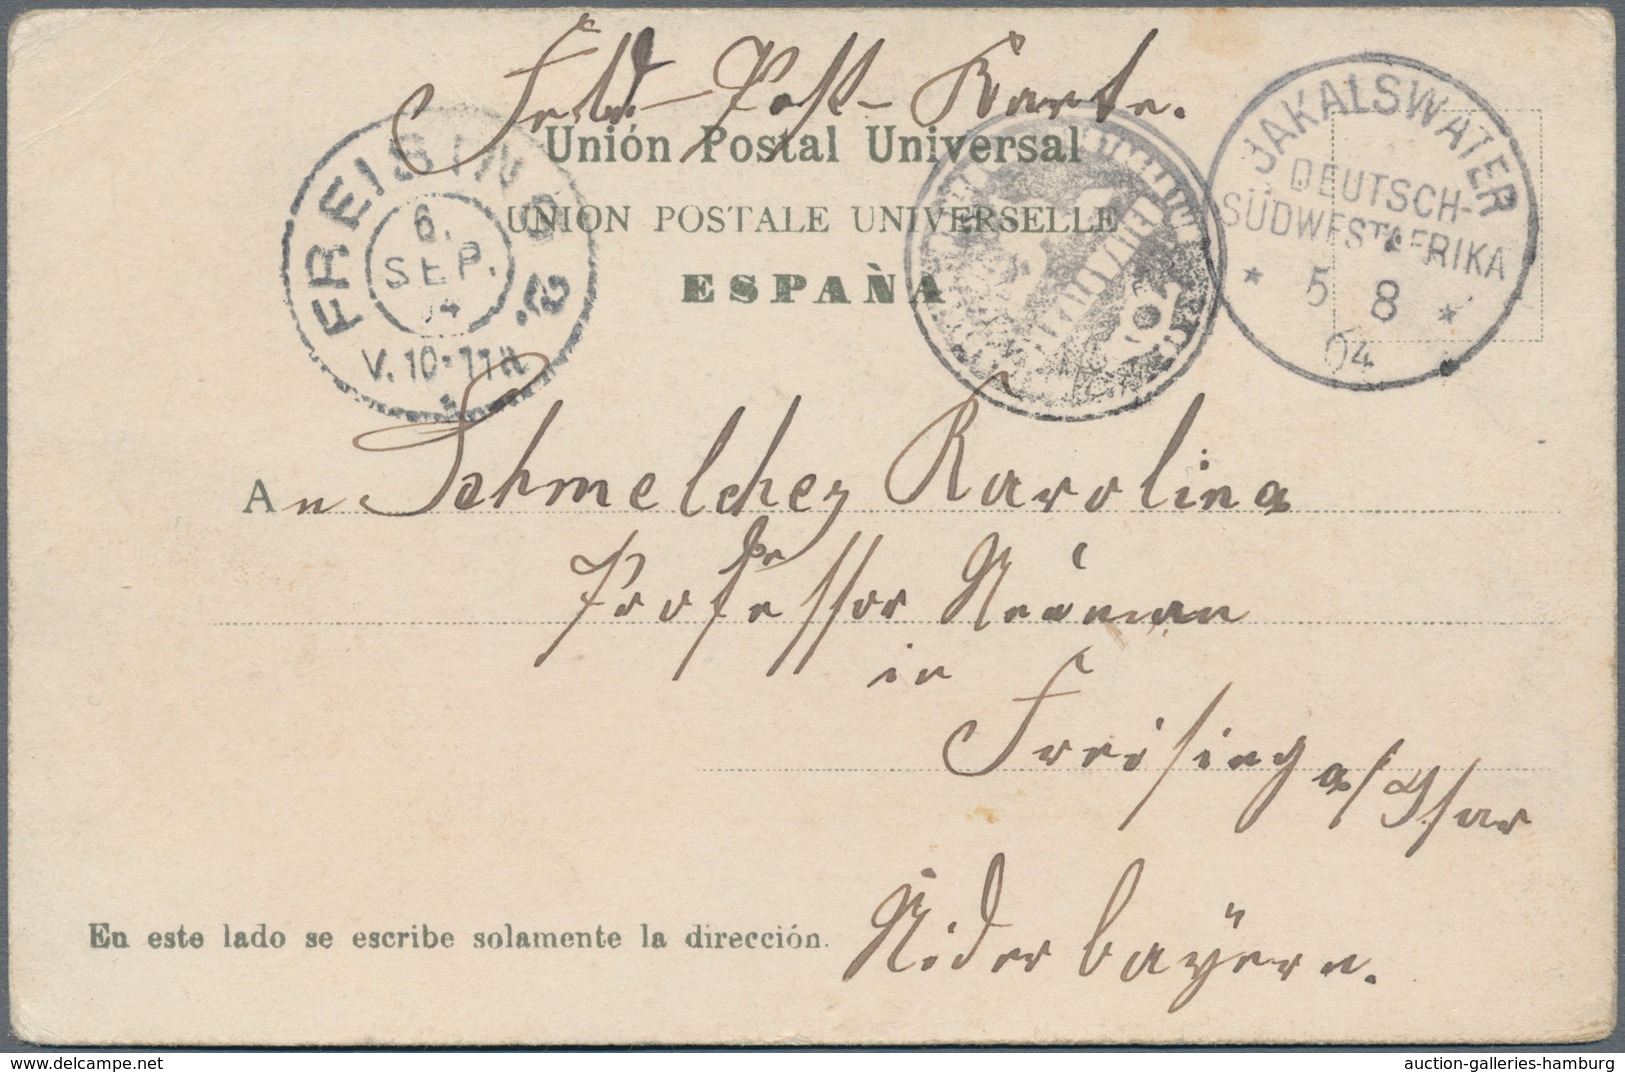 Feld-Post-Karte.
Unión Postal Universal
UNION POSTALE UNIVERSELLE
ESPAÑA
FREISING 2.
6.
SEP.
04
V.10-11
JAKALSWATER
DEUTSCH-
SÜDWESTAFRIKA
* 5 8 *
04
An Schmelcher Karolina
Professor
in
Freising a/Isar
Niderbayern.
En este lado se escribe solamente la dirección.
www.delcampe.net
auction-galleries-hamburg